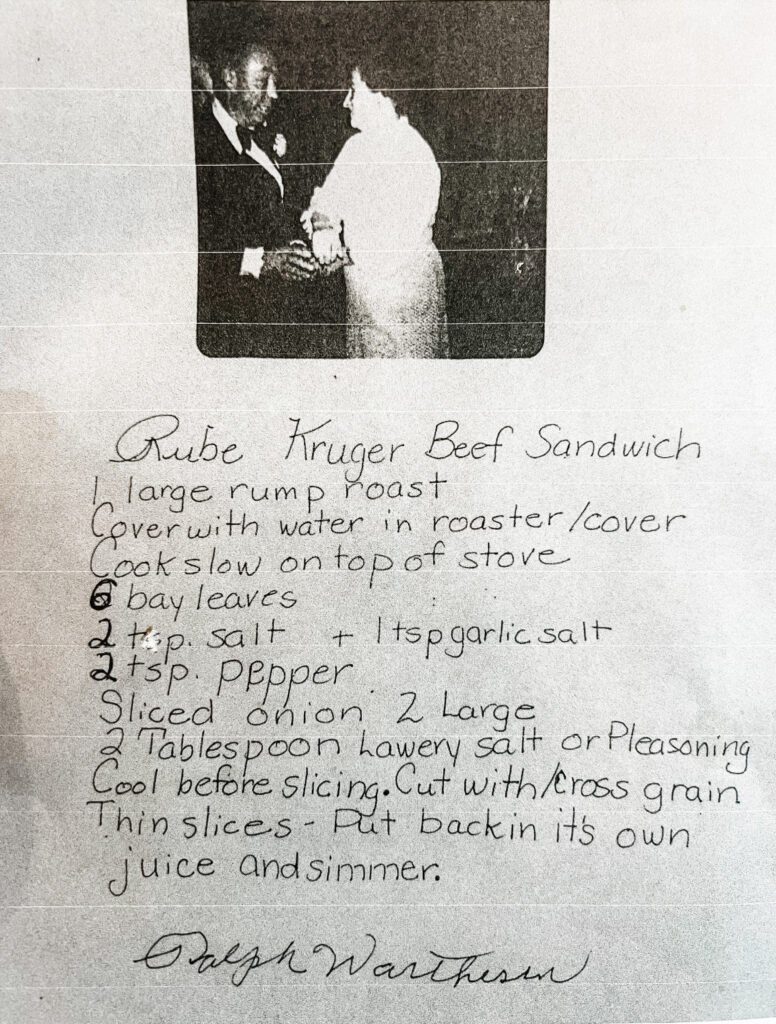 Rube Kruger Beef Sandwich
1 large rump roast
Cover with water in roaster/cover
Cook slow on top of stove
6 bay leaves
2 tsp. salt + 1 tsp garlic salt
2 tsp. pepper
Sliced onion 2 Large
2 Tablespoon Lawery salt or Pleasoning
Cool before slicing. Cut with/cross grain
Thin slices - Put back in it's own
juice and simmer.
Ralph Warthesen